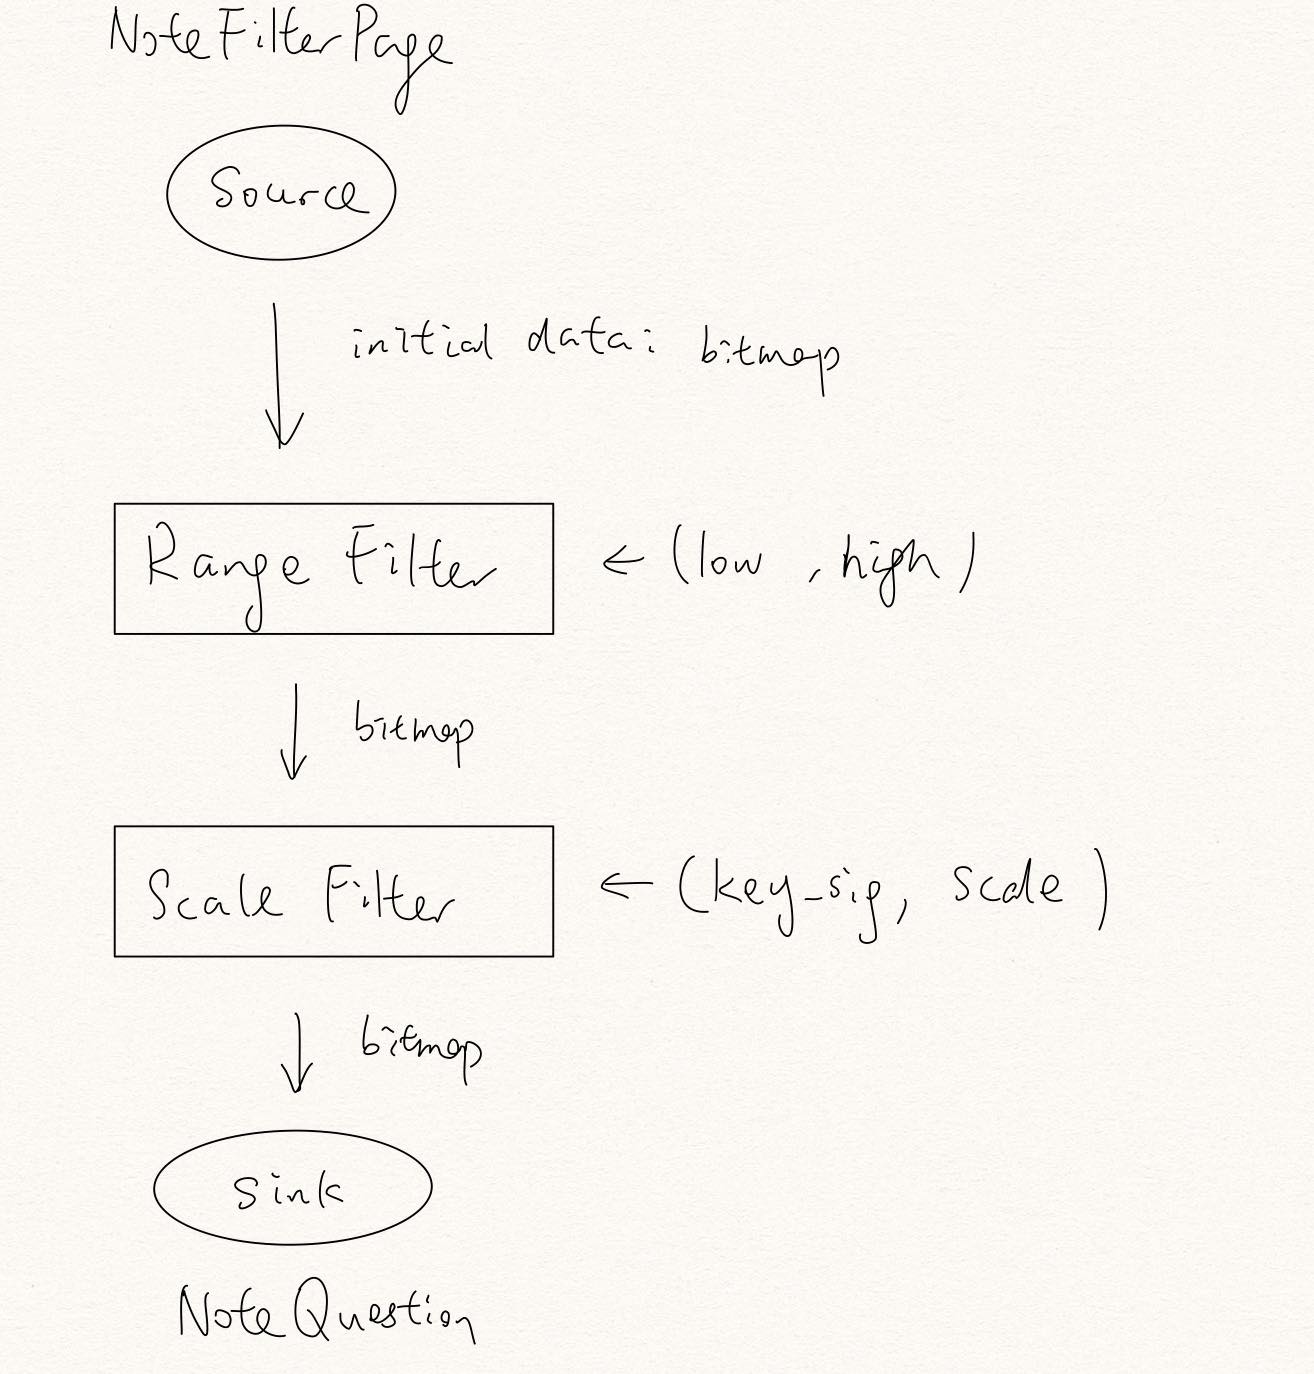 NoteFilterPage
Source
initial data: bitmap
Range Filter ← (low , high)
bitmap
Scale Filter ← (key_sig, scale)
bitmap
sink
NoteQuestion